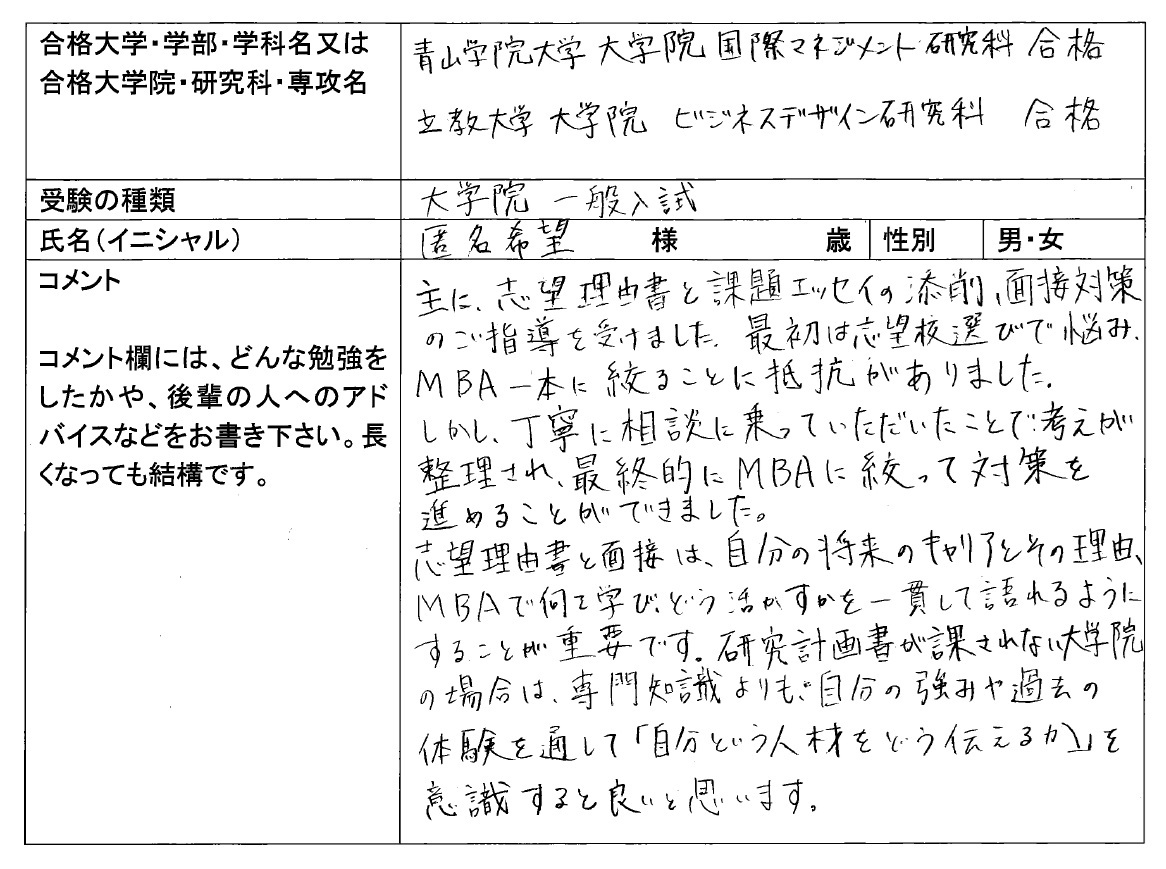 合格大学・学部・学科名又は
合格大学院・研究科・専攻名
青山学院大学 大学院 国際マネジメント研究科 合格
立教大学 大学院 ビジネスデザイン研究科 合格
受験の種類
大学院 一般入試
氏名(イニシャル)
匿名希望 様 歳 性別 男・女
コメント
コメント欄には、どんな勉強を
したかや、後輩の人へのアド
バイスなどをお書き下さい。長
くなっても結構です。
主に、志望理由書と課題エッセイの添削、面接対策
のご指導を受けました。最初は志望校選びで悩み、
MBA一本に絞ることに抵抗がありました。
しかし、丁寧に相談に乗っていただいたことで考えが
整理され、最終的にMBAに絞って対策を
進めることができました。
志望理由書と面接は、自分の将来のキャリアとその理由、
MBAで何を学び、どう活かすかを一貫して語れるように
することが重要です。研究計画書が課されない大学院
の場合は、専門知識よりも、自分の強みや過去の
体験を通して「自分という人材をどう伝えるか」を
意識すると良いと思います。